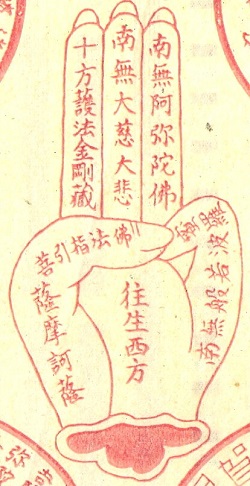 南無阿弥陀佛
南無大慈大悲
十方護法金剛藏
南無般若波羅蜜
佛法指引菩薩摩訶薩
往生西方